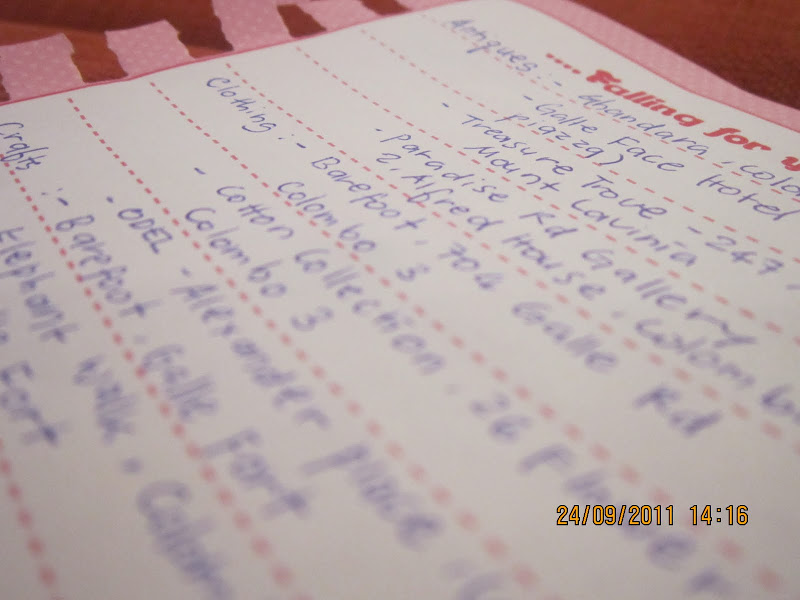 .... Falling for
Antiques :- Abandara, Colo
- Galle Face Hotel
Plazza)
- Treasure Trove - 247,
Mount Lavinia
- Paradise Rd Gallery
2, Alfred House, Colomb
Clothing :- Barefoot, 704 Galle Rd
Colombo 3
- Cotton Collection, 26 F
Colombo 3
- ODEL - Alexander place
Crafts :- Barefoot, Galle Fort
Elephant Walk, Colom
Fort
24/09/2011 14:16